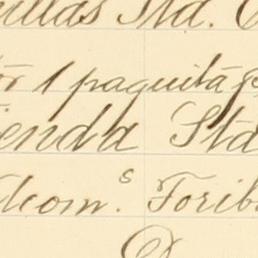 illas Std.
ör 1 paquitá
enda Std
dcom.s Torib
D